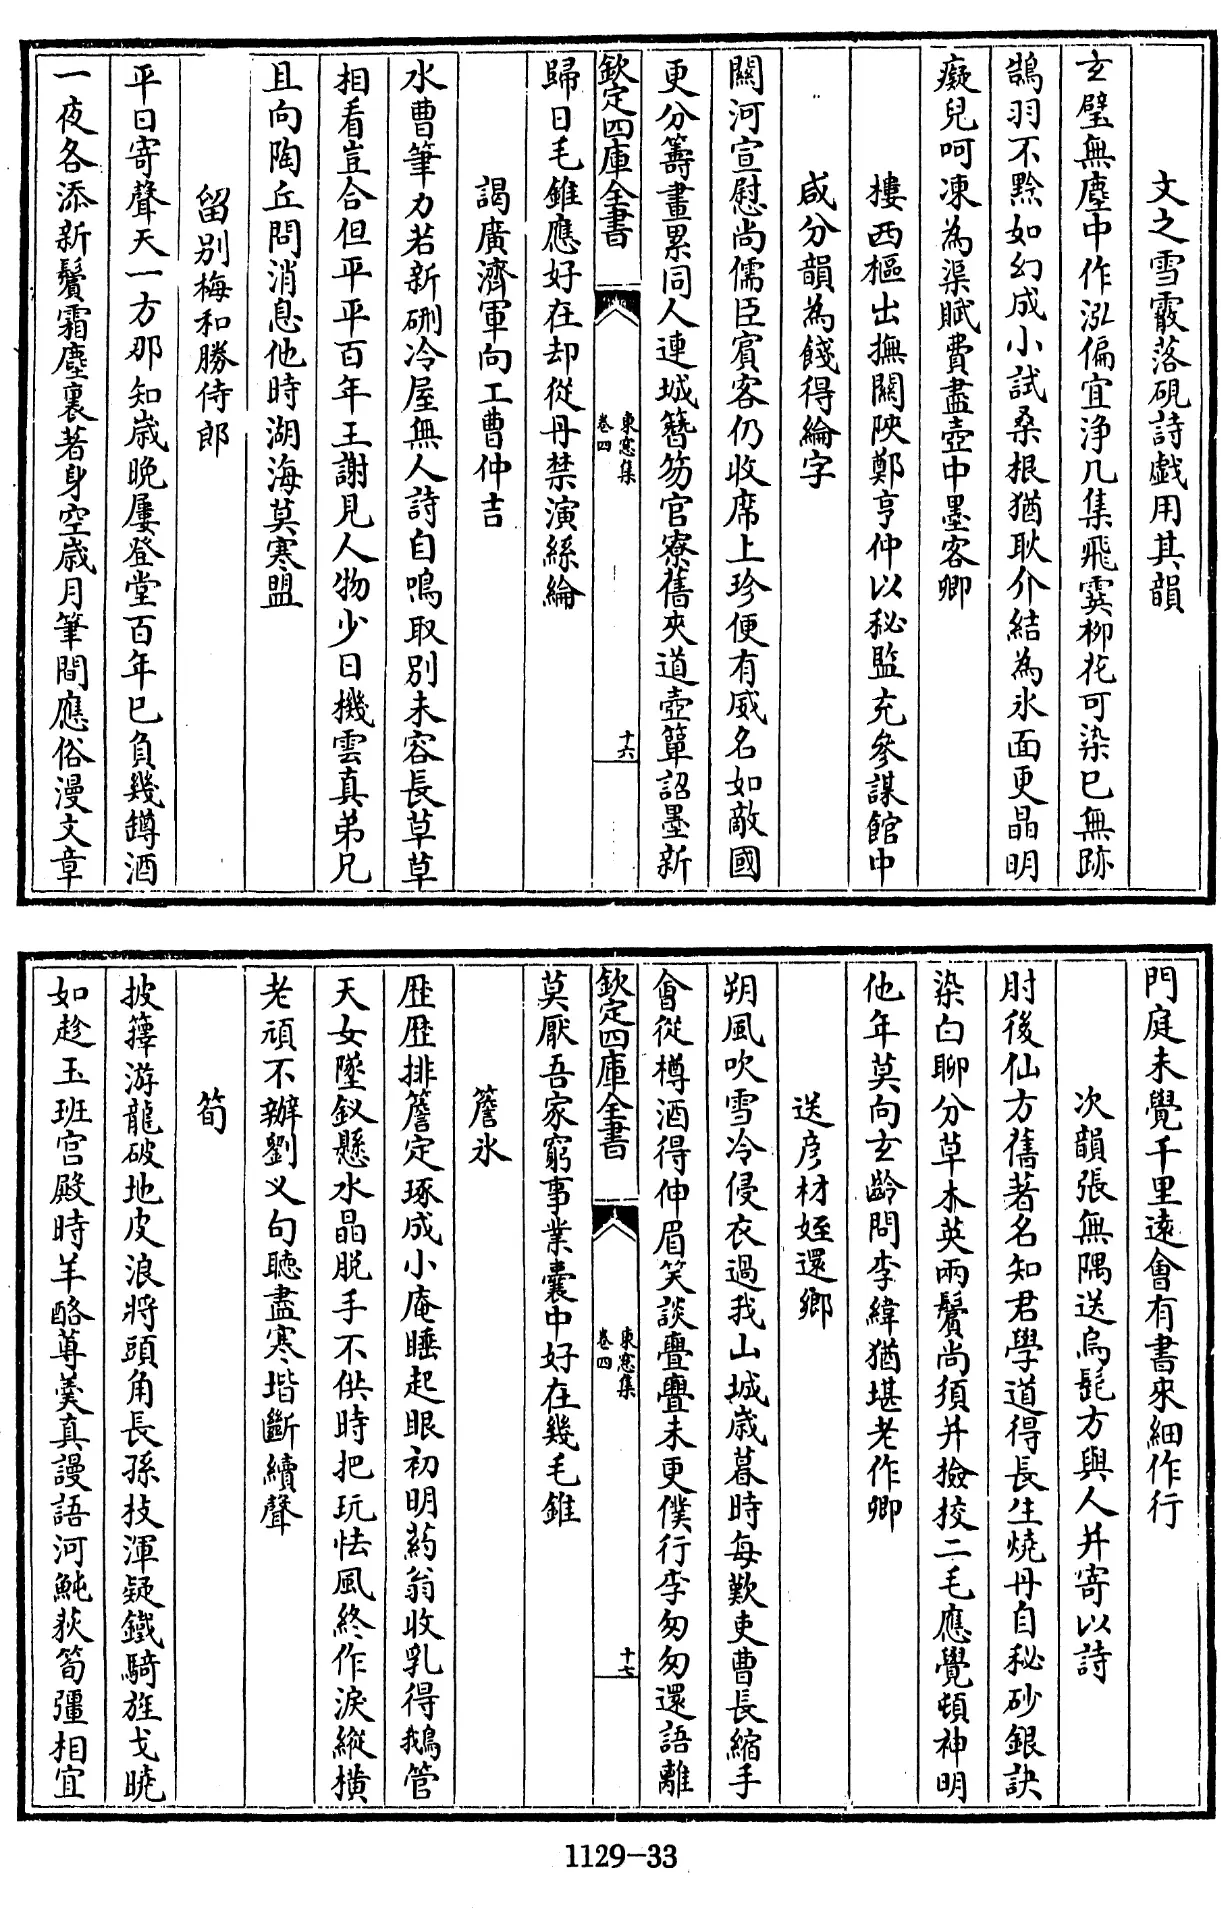 文之雪霰落硯詩戲用其韻
玄璧無塵中作泓偏宜淨几集飛霙柳花可染已無跡
鵠羽不黔如幻成小試桑根猶耿介結為氷面更晶明
癡兒呵凍為渠賦費盡壺中墨客卿
樓西樞出撫關陜鄭亨仲以秘監充參謀館中
咸分韻為餞得綸字
關河宣慰尚儒臣賓客仍收席上珍便有威名如敵國
更分籌畫累同人連城簪笏官寮舊夾道壺簞詔墨新
欽定四庫全書
東窓集
卷四
十六
歸日毛錐應好在却從丹禁演絲綸
謁廣濟軍向工曹仲吉
水曹筆力若新硎冷屋無人詩自鳴取別未容長草草
相看豈合但平平百年王謝見人物少日機雲真弟兄
且向陶丘問消息他時湖海莫寒盟
留別梅和勝侍郎
平日寄聲天一方那知歲晚屢登堂百年已負幾罇酒
一夜各添新鬢霜塵裏著身空歲月筆間應俗漫文章
門庭未覺千里逺會有書來細作行
次韻張無隅送烏髭方與人并寄以詩
肘後仙方舊著名知君學道得長生燒丹自秘砂銀訣
染白聊分草木英兩鬢尚須并撿挍二毛應覺頓神明
他年莫向玄齡問李緯猶堪老作卿
送彦材姪還鄉
朔風吹雪冷侵衣過我山城歲暮時每歎吏曹長縮手
會從樽酒得伸眉笑談亹亹未更僕行李匆匆還語離
欽定四庫全書
東窓集
卷四
十七
莫厭吾家窮事業囊中好在幾毛錐
簷氷
歷歷排簷定琢成小庵睡起眼初明葯翁收乳得鵝管
天女墜釵懸水晶脱手不供時把玩怯風終作淚縱橫
老頑不辦劉乂句聽盡寒堦斷續聲
筍
披籜游龍破地皮浪將頭角長孫枝渾疑鐵騎旌戈曉
如趁玉班宮殿時羊酪蓴羮真謾語河魨荻筍彊相宜
1129-33